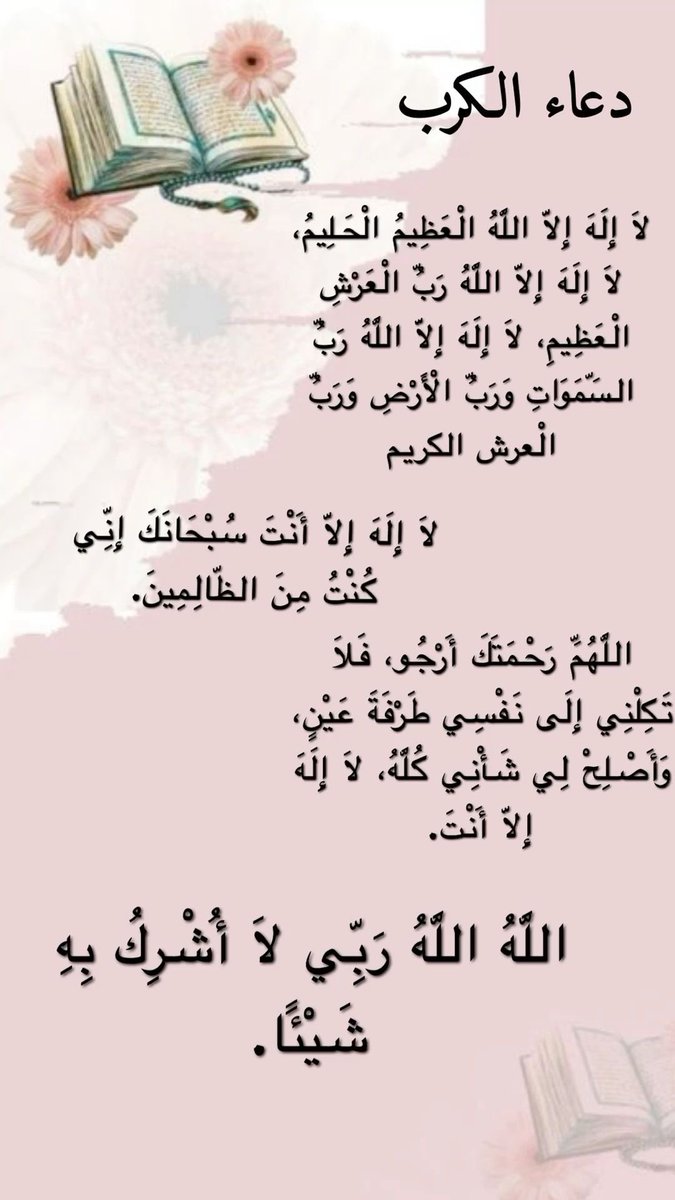 دعاء الكرب
لاَ إِلَهَ إِلاّ اللَّهُ الْعَظِيمُ الْحَلِيمُ،
لاَ إِلَهَ إِلاّ اللَّهُ رَبُّ الْعَرْشِ
الْعَظِيمِ، لاَ إِلَهَ إِلاّ اللَّهُ رَبُّ
السَّمَوَاتِ وَرَبُّ الْأَرْضِ وَرَبُّ
الْعرش الكريم
لاَ إِلَهَ إِلاّ أَنْتَ سُبْحَانَكَ إِنِّي
كُنْتُ مِنَ الظّالِمِينَ.
اللَّهُمِّ رَحْمَتَكَ أَرْجُو، فَلاَ
تَكِلْنِي إِلَى نَفْسِي طَرْفَةَ عَيْنٍ،
وَأَصْلِحْ لِي شَأْنِي كُلَّهُ، لاَ إِلَهَ
إِلاّ أَنْتَ.
اللَّهُ اللَّهُ رَبِّي لاَ أُشْرِكُ بِهِ
شَيْئًا.